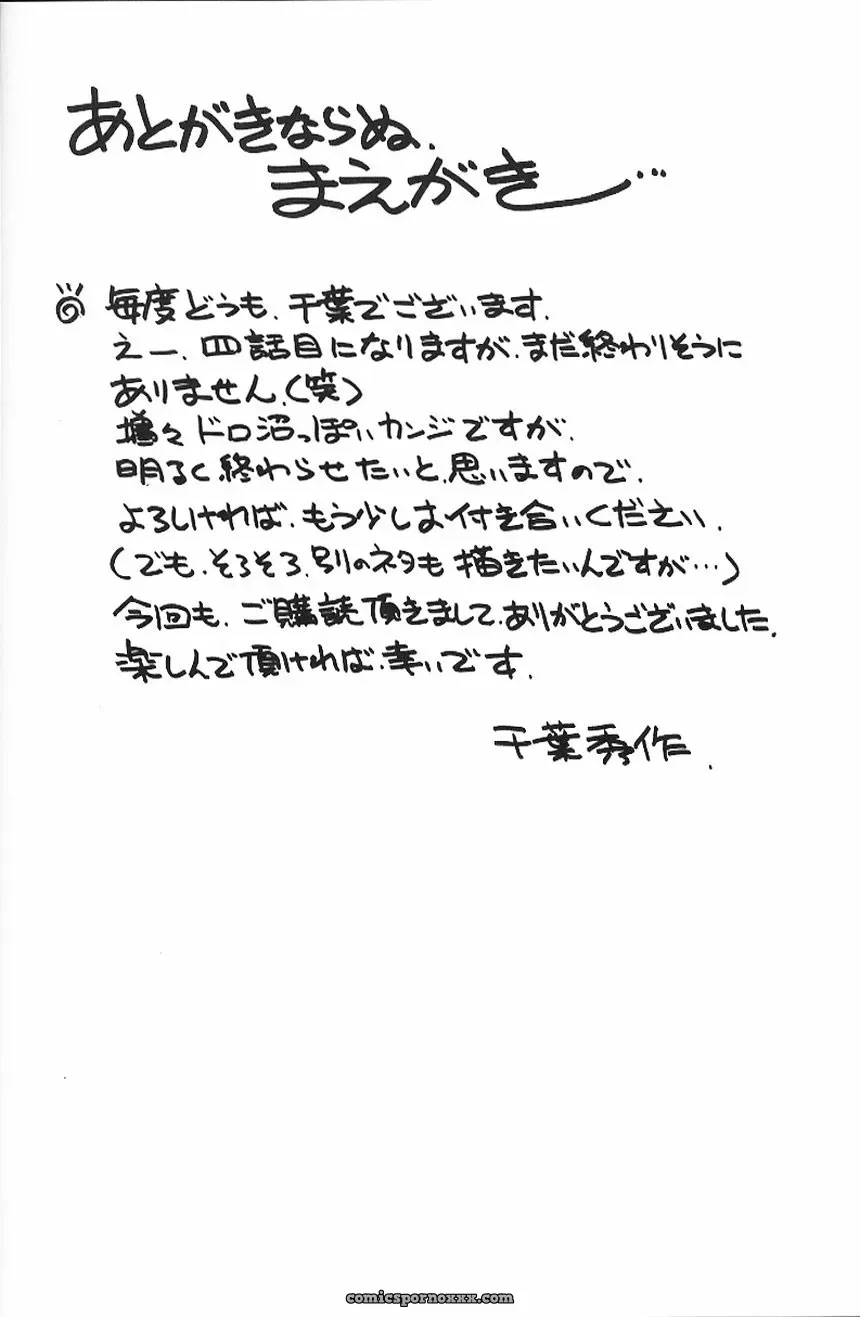 あとがきならぬ、
まえがき…
毎度どうも、千葉でございます.
えー、四話目になりますが、まだ終わりそうに
ありません.(笑)
増々ドロ沼っぽいカンジですが、
明るく終わらせたいと、思いますので、
よろしければ、もう少しお付き合いください.
(でも、そろそろ、別のネタも描きたいんですが…)
今回も、ご購読頂きまして、ありがとうございました.
楽しんで頂ければ、幸いです.
千葉秀作.
comicspornoxxx.com